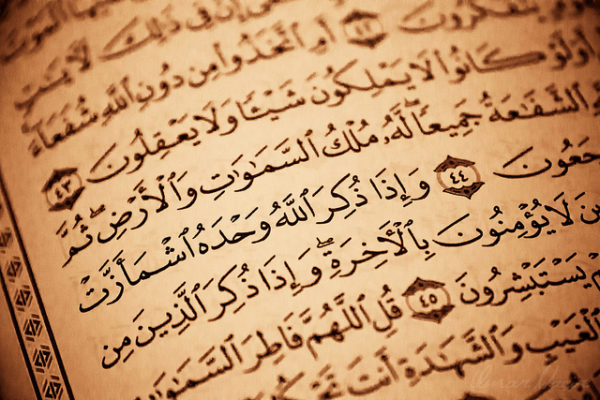 يَتَفَكَّرُونَ ﴿٤٢﴾ إِنَّ فِى ذَٰلِكَ لَءَايَٰتٍ
أَمِ ٱتَّخَذُوا۟ مِن دُونِ ٱللَّهِ شُفَعَآءَ
أَوَلَوْ كَانُوا۟ لَا يَمْلِكُونَ شَيْـًٔا وَلَا يَعْقِلُونَ ﴿٤٣﴾
ٱلشَّفَٰعَةُ جَمِيعًا لَّهُۥ مُلْكُ ٱلسَّمَٰوَٰتِ وَٱلْأَرْضِ ثُمَّ
جَعُونَ ﴿٤٤﴾ وَإِذَا ذُكِرَ ٱللَّهُ وَحْدَهُ ٱشْمَأَزَّتْ
ينَ لَا يُؤْمِنُونَ بِٱلْءَاخِرَةِ وَإِذَا ذُكِرَ ٱلَّذِينَ مِن
مْ يَسْتَبْشِرُونَ ﴿٤٥﴾ قُلِ ٱللَّهُمَّ فَاطِرَ ٱلسَّمَٰوَٰ
ٱلْغَيْبِ وَٱلشَّهَٰدَةِ أَنتَ تَحْكُمُ